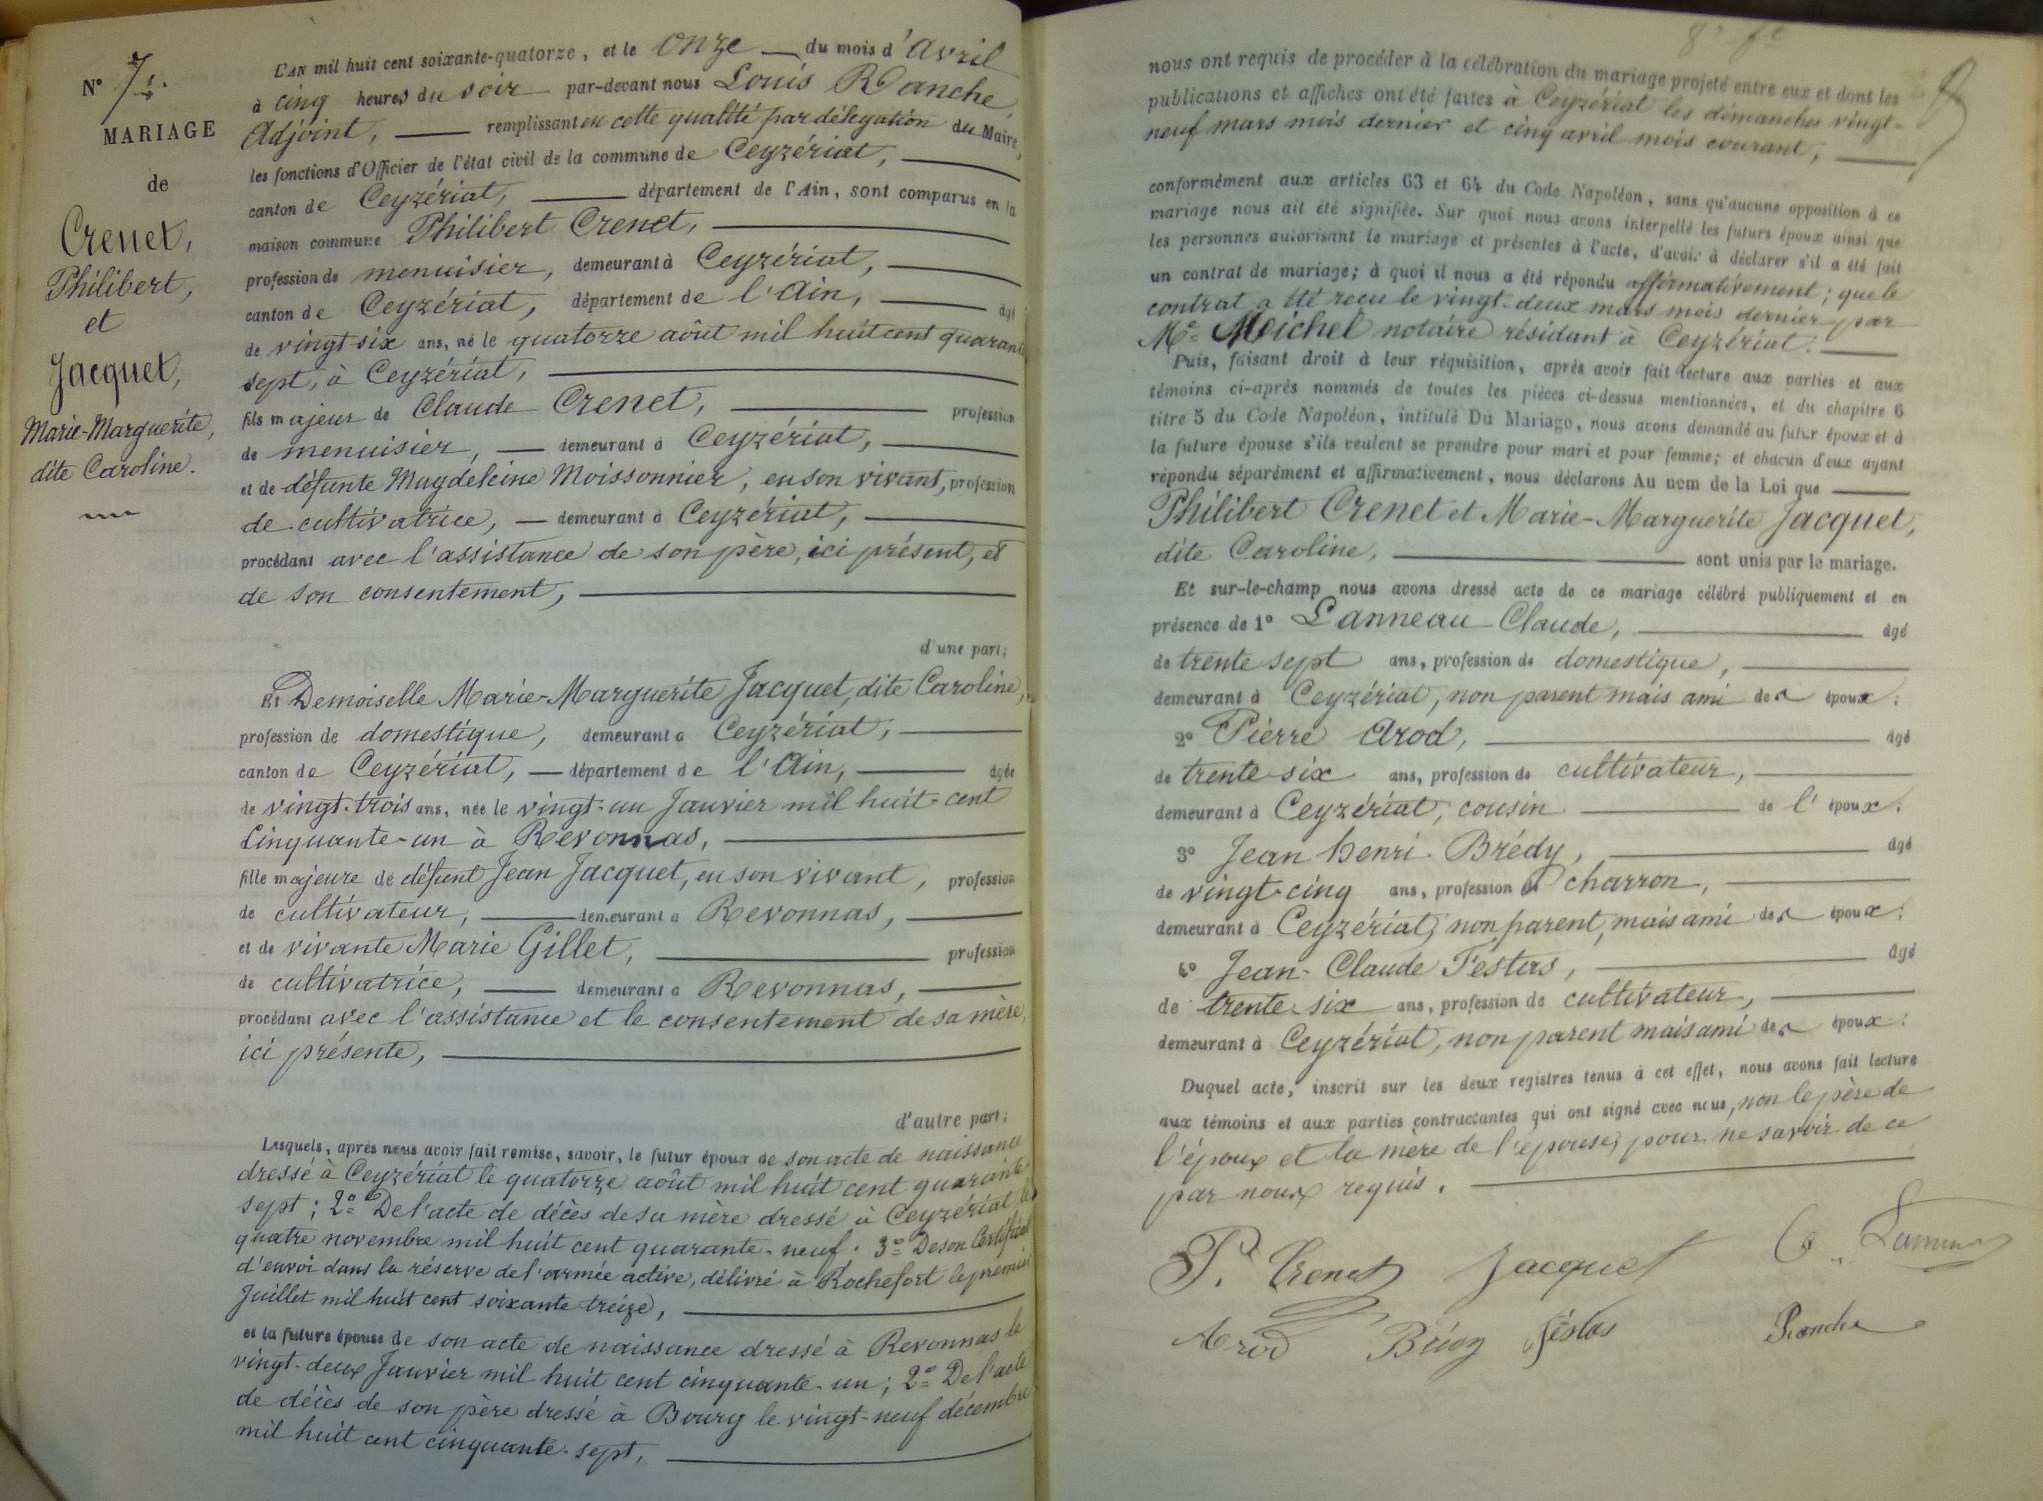 N° 7.
MARIAGE
de
Crenet,
Philibert,
et
Jacquet,
Marie-Marguerite,
dite Caroline.
L'AN mil huit cent soixante-quatorze, et le onze du mois d'Avril
à cinq heures du soir par-devant nous Louis Ranche,
Adjoint, remplissant en cette qualité par délégation du Maire,
les fonctions d'Officier de l'état civil de la commune de Ceyzériat,
canton de Ceyzériat, département de l'Ain, sont comparus en la
maison commune Philibert Crenet,
profession de menuisier, demeurant à Ceyzériat,
canton de Ceyzériat, département de l'Ain, âgé
de vingt six ans, né le quatorze août mil huit cent quarante
sept, à Ceyzériat,
fils majeur de Claude Crenet, profession
de menuisier, demeurant à Ceyzériat,
et de défunte Magdeleine Moissonnier, en son vivant, profession
de cultivatrice, demeurant à Ceyzériat,
procédant avec l'assistance de son père, ici présent, et
de son consentement,
d'une part;
Et Demoiselle Marie-Marguerite Jacquet, dite Caroline,
profession de domestique, demeurant à Ceyzériat,
canton de Ceyzériat, département de l'Ain, âgée
de vingt-trois ans, née le vingt-un Janvier mil huit-cent
Cinquante-un à Revonnas,
fille majeure de défunt Jean Jacquet, en son vivant, profession
de cultivateur, demeurant à Revonnas,
et de vivante Marie Gillet, profession
de cultivatrice, demeurant à Revonnas,
procédant avec l'assistance et le consentement de sa mère,
ici présente,
d'autre part;
Lesquels, après nous avoir fait remise, savoir, le futur époux de son acte de naissance
dressé à Ceyzériat le quatorze août mil huit cent quarante-
sept; 2° De l'acte de décès de sa mère dressé à Ceyzériat, le
quatre novembre mil huit cent quarante-neuf. 3° De son Certificat
d'envoi dans la réserve de l'armée active, délivré à Rochefort le premier
Juillet mil huit cent soixante treize,
et la future épouse de son acte de naissance dressé à Revonnas le
vingt-deux Janvier mil huit cent cinquante-un; 2° De l'acte
de décès de son père dressé à Bourg le vingt-neuf décembre
mil huit cent cinquante-sept,
8e ft
nous ont requis de procéder à la célébration du mariage projeté entre eux et dont les
publications et affiches ont été faites à Ceyzériat les dimanches vingt-
neuf mars mois dernier et cinq avril mois courant,
conformément aux articles 63 et 64 du Code Napoléon, sans qu'aucune opposition à ce
mariage nous ait été signifiée. Sur quoi nous avons interpellé les futurs époux ainsi que
les personnes autorisant le mariage et présentes à l'acte, d'avoir à déclarer s'il a été fait
un contrat de mariage; à quoi il nous a été répondu affirmativement; que le
contrat a été reçu le vingt-deux mars mois dernier par
Me Michel notaire résidant à Ceyzériat.
Puis, faisant droit à leur réquisition, après avoir fait lecture aux parties et aux
témoins ci-après nommés de toutes les pièces ci-dessus mentionnées, et du chapitre 6
titre 5 du Code Napoléon, intitulé Du Mariage, nous avons demandé au futur époux et à
la future épouse s'ils veulent se prendre pour mari et pour femme; et chacun d'eux ayant
répondu séparément et affirmativement, nous déclarons Au nom de la Loi que
Philibert Crenet et Marie-Marguerite Jacquet,
dite Caroline, sont unis par le mariage.
Et sur-le-champ nous avons dressé acte de ce mariage célébré publiquement et en
présence de 1° Lanneau Claude, âgé
de trente sept ans, profession de domestique,
demeurant à Ceyzériat, non parent mais ami des époux:
2° Pierre Arod, âgé
de trente-six ans, profession de cultivateur,
demeurant à Ceyzériat, cousin de l'époux:
3° Jean henri Brédy, âgé
de vingt-cinq ans, profession de charron,
demeurant à Ceyzériat, non parent, mais ami des époux:
4° Jean-Claude Festas, âgé
de trente six ans, profession de cultivateur,
demeurant à Ceyzériat, non parent mais ami des époux:
Duquel acte, inscrit sur les deux registres tenus à cet effet, nous avons fait lecture
aux témoins et aux parties contractantes qui ont signé avec nous, non le père de
l'époux et la mère de l'épouse, pour ne savoir de ce
par nous requis.
P. Crenet Jacquet C. Lanneau
Arod Brédy Féstas Ranche